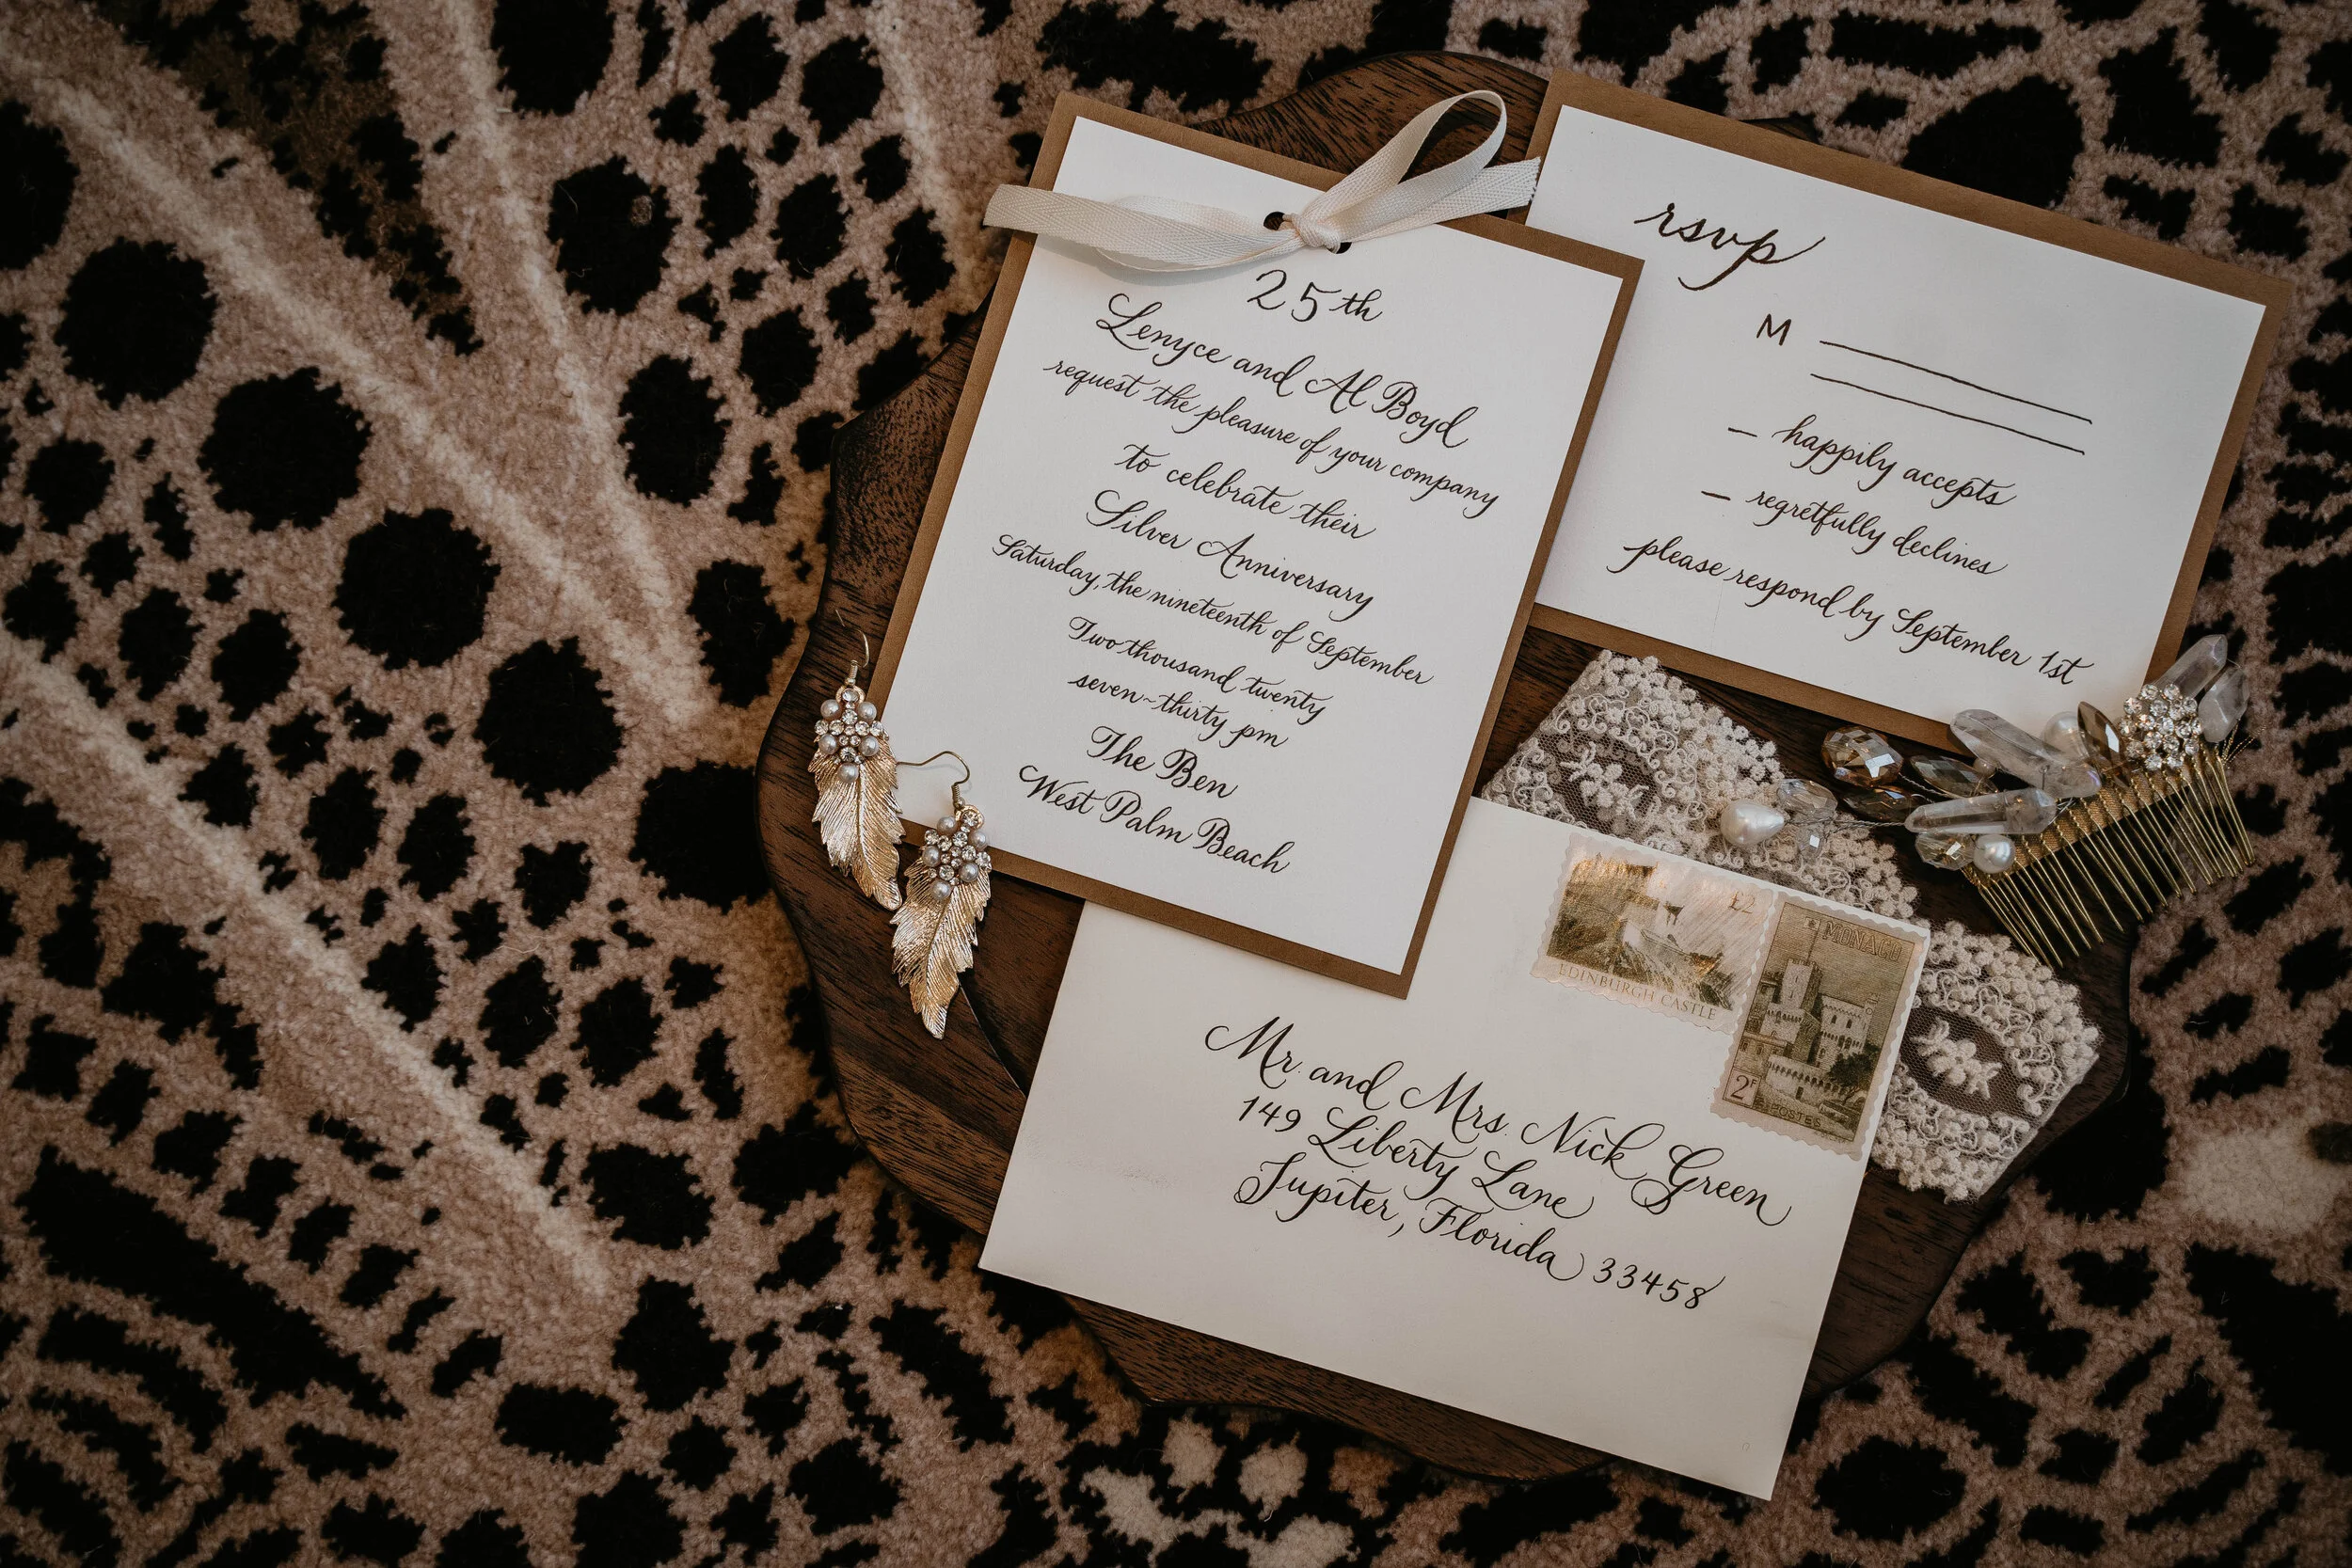 25th
Lenyce and Al Boyd
request the pleasure of your company
to celebrate their
Silver Anniversary
Saturday, the nineteenth of September
Two thousand twenty
seven-thirty pm
The Ben
West Palm Beach
rsvp
M
— happily accepts
— regretfully declines
please respond by September 1st
£2
EDINBURGH CASTLE
MONACO
2F
POSTES
Mr. and Mrs. Nick Green
149 Liberty Lane
Jupiter, Florida 33458